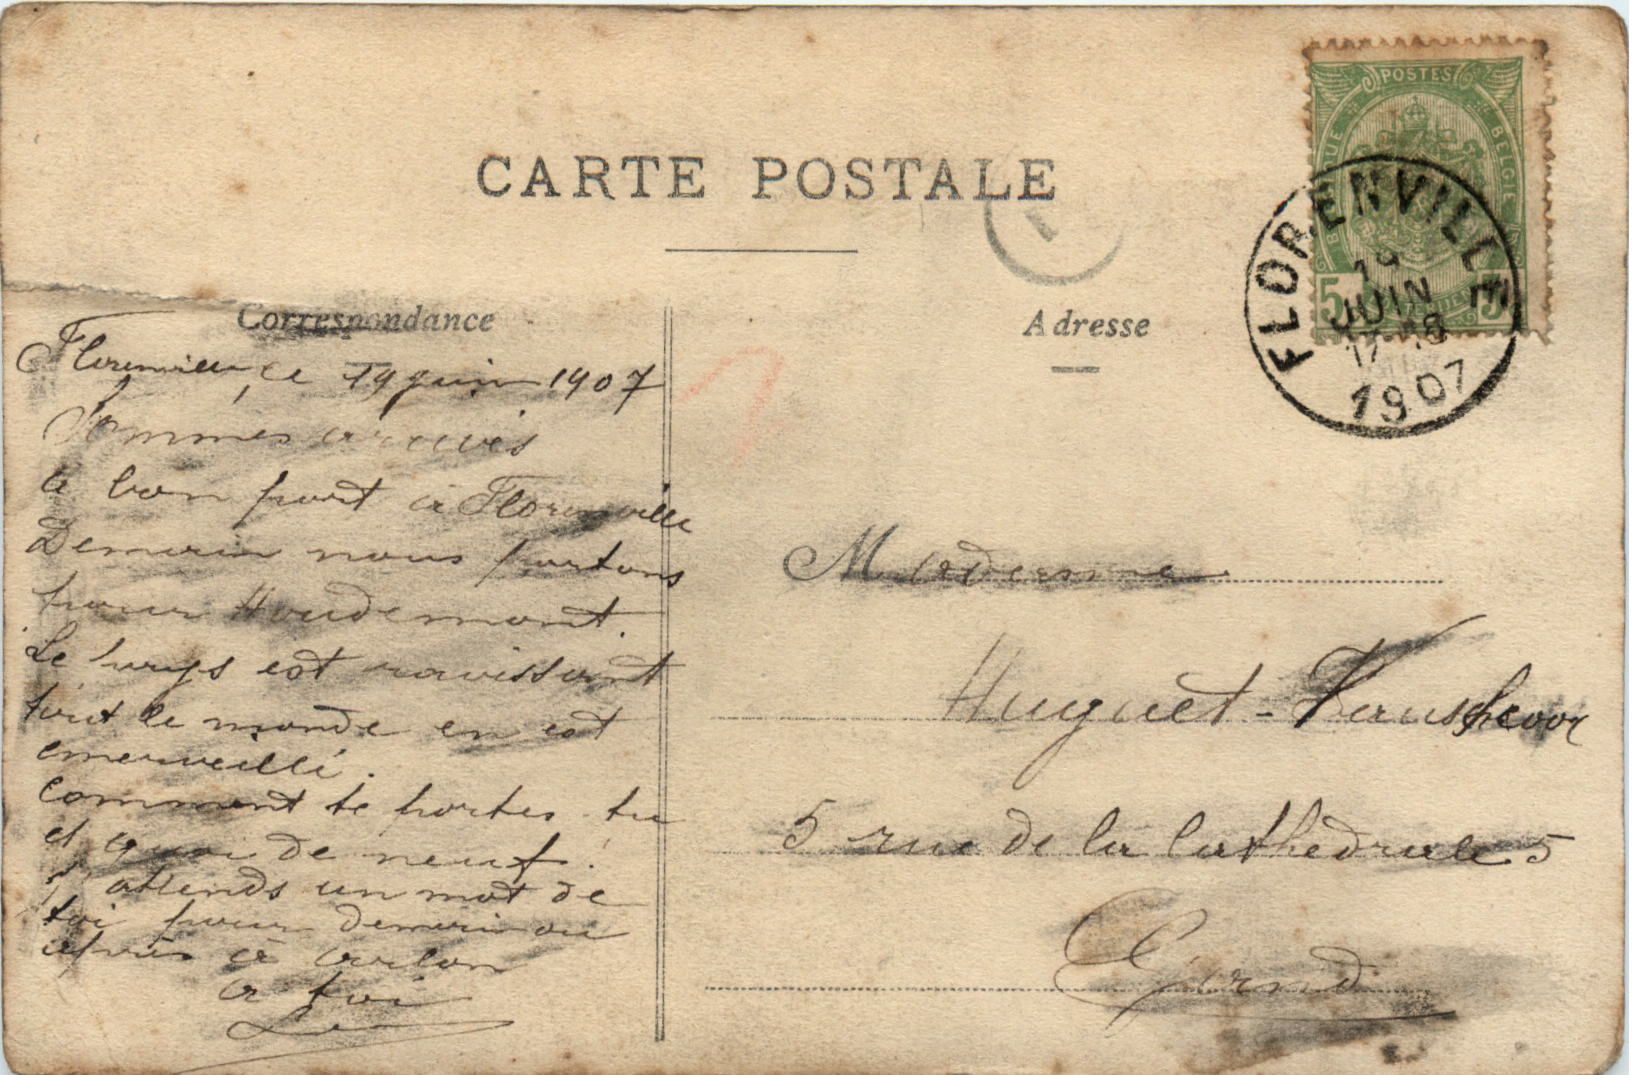 CARTE POSTALE
POSTES
BELGIQUE BELGIE
5 5
FLORENVILLE
19
JUIN
17-18
1907
Correspondance
Adresse
Florenville, ce 19 juin 1907
Sommes arrivés
à bon port à Florenville
Demain nous partons
pour Houdemont.
Le pays est ravissant
tout le monde en est
emerveillé.
Comment te portes tu
et quoi de neuf.
J'attends un mot de
toi pour demain ou
après à Arlon
à toi
Madame
Huguet -
5 rue de la Cathédrale 5
Gand